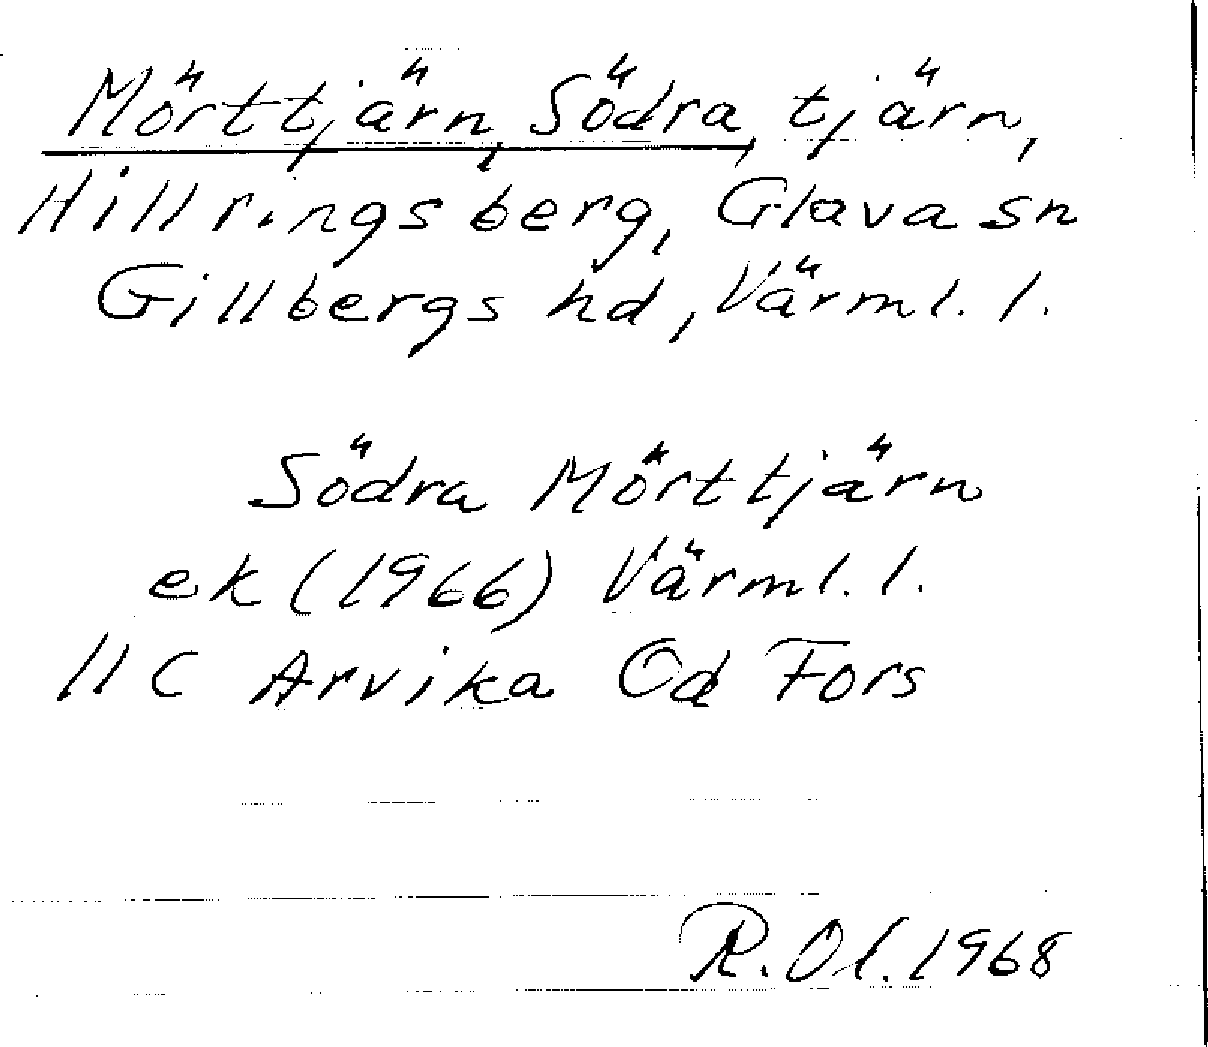 Mörttjärn, Södra, tjärn,
Hillringsberg, Glava sn
Gillbergs hd, Värml. l.
Södra Mörttjärn
ek (1966) Värml. l.
11 C Arvika Od Fors
R. Ol. 1968